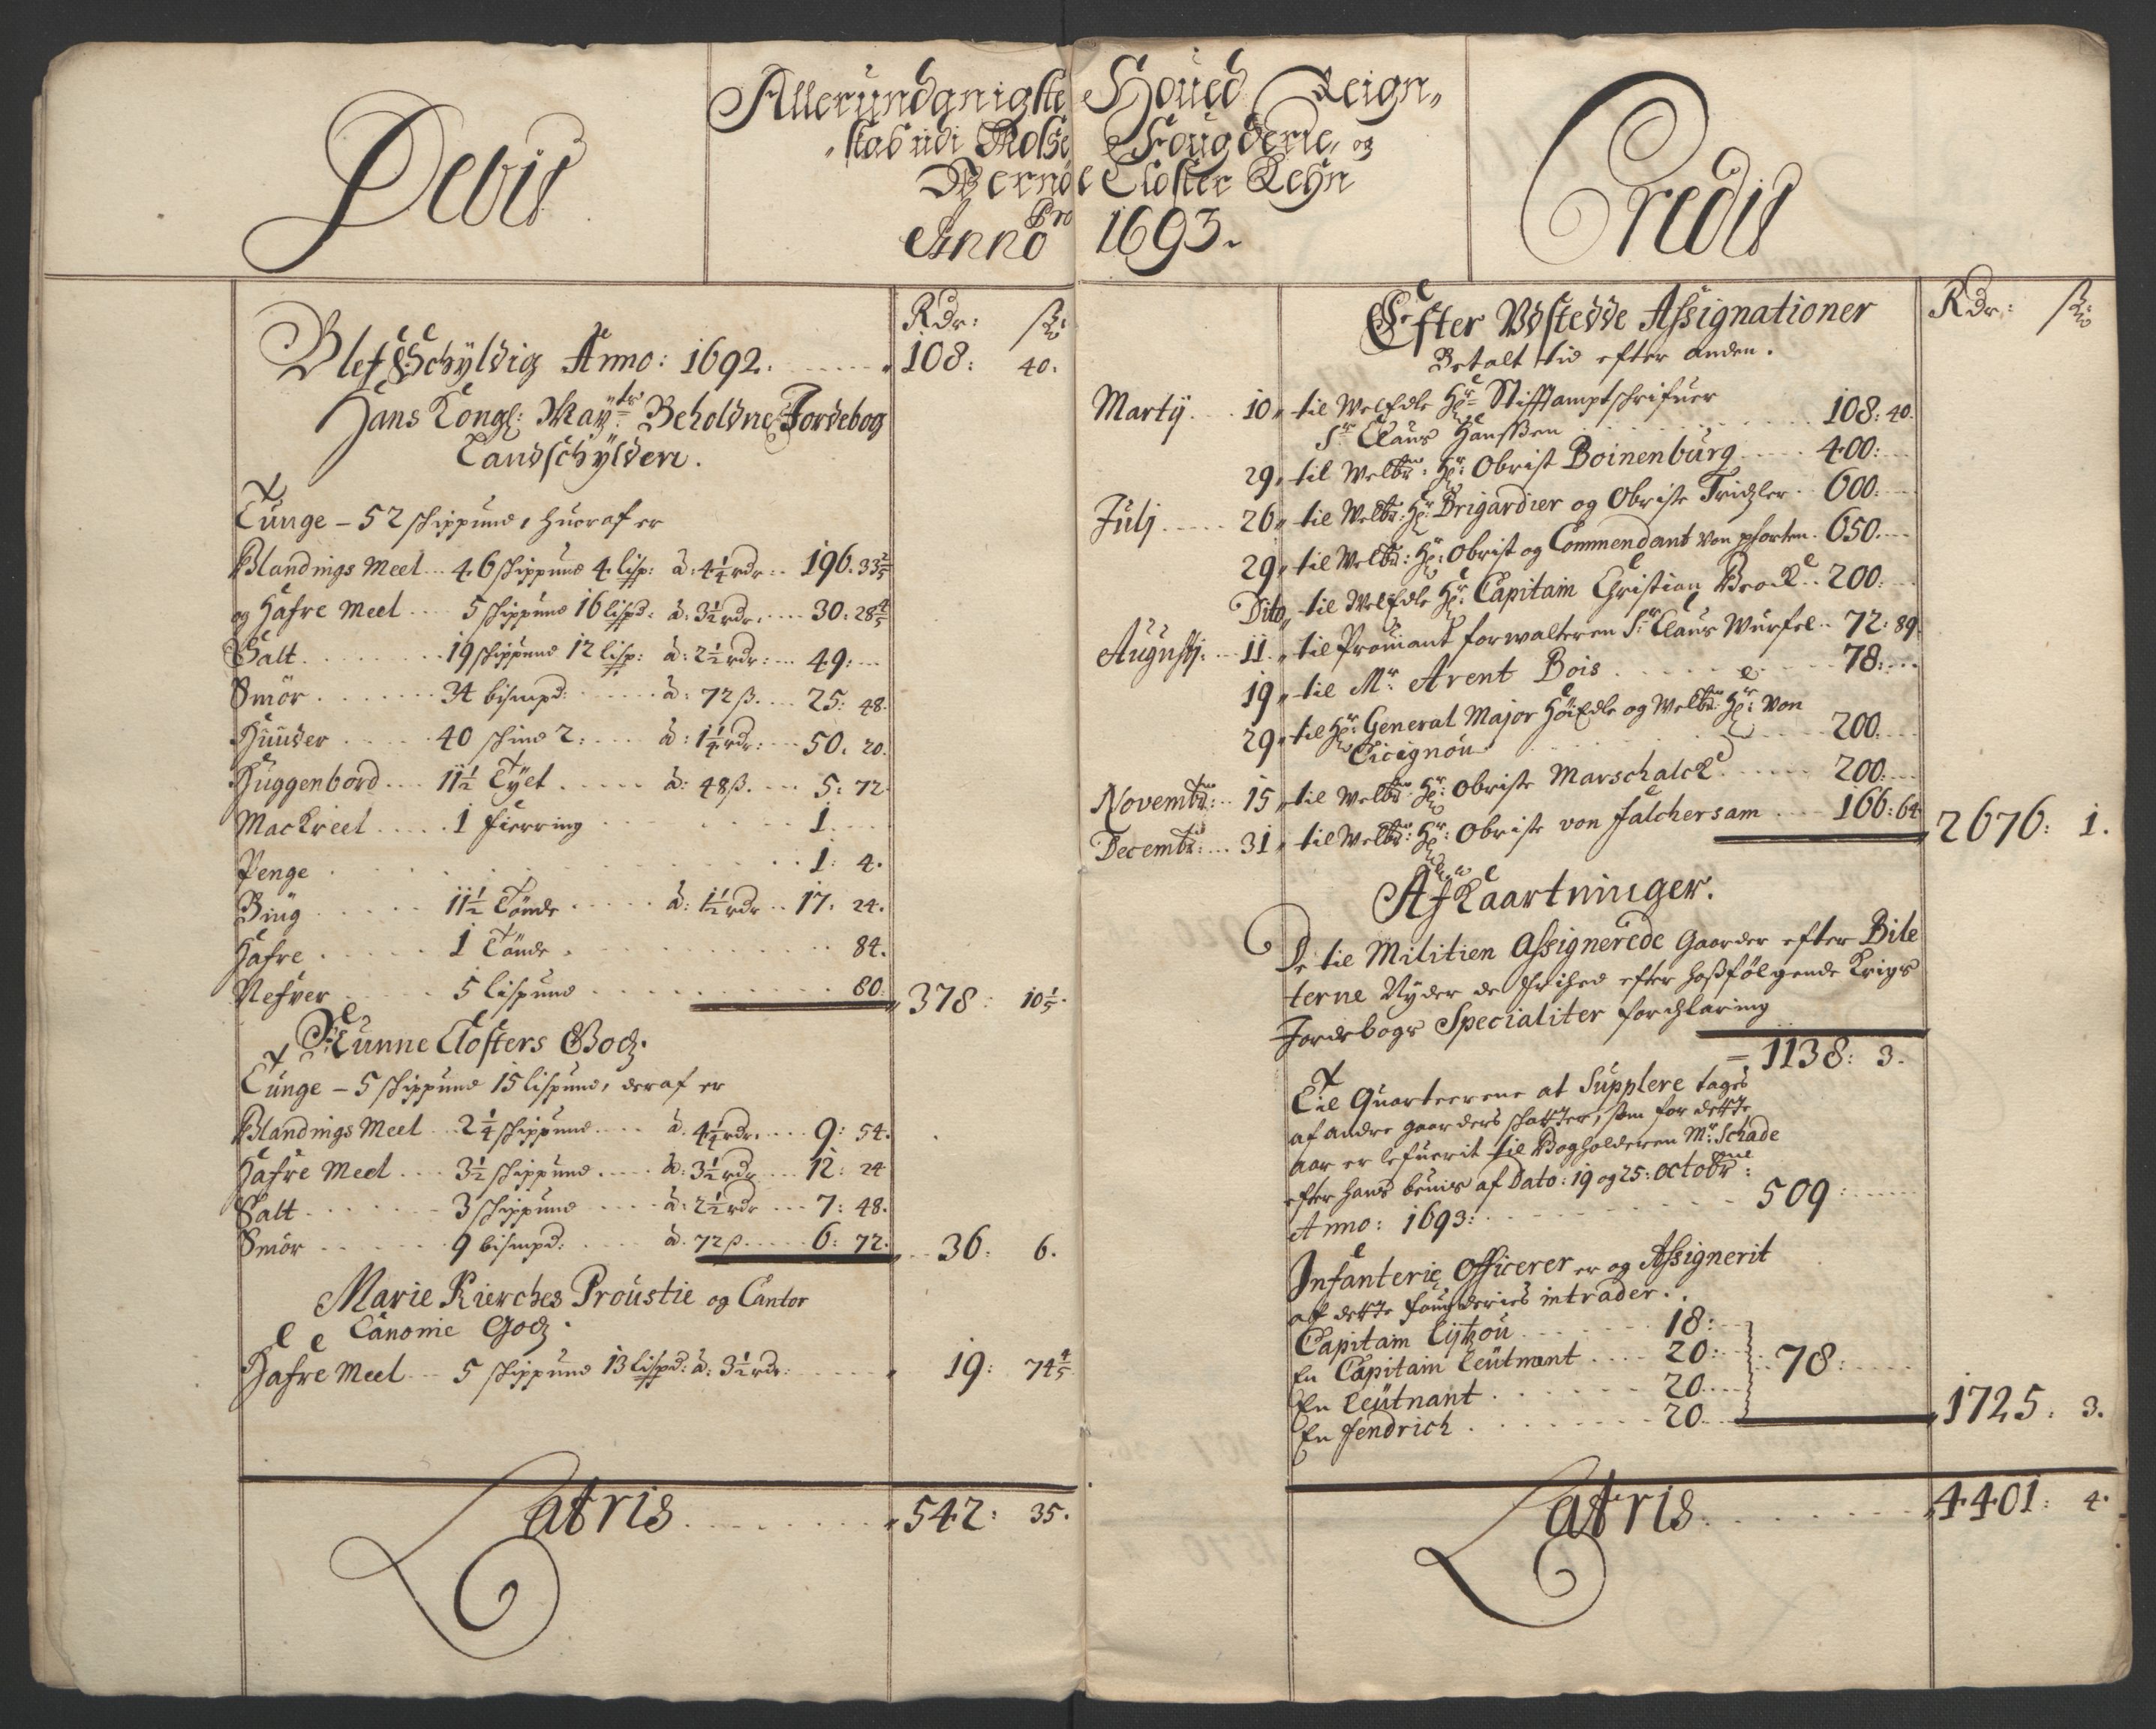 Debit
Allerunderdanigste Hoŭed Reign„
„skab udi Moſse Foŭgderie„ og
Wernøe Closter Lehn
Pro
Anno 1693.
Credit
Rdr: ß:
Blef Schÿldig Anno: 1692. 108: 40.
Hans Kongl: Maÿtz Beholdne Jordebog
Landschÿlden.
Tunge – 52 skippund, huoraf er
Blandings Meel 46 skippund 4 lisp: à: 4¼ rdr: 196. 33 2/5
og Hafre Meel 5 skippund 16 lispd: à: 3½ rdr. 30: 28 4/5
Salt 19 skippund 12 lisp: à: 2½ rdr: 49:
Smör 34 bismpd: à: 72 ß. 25: 48.
Huuder 40 skind à: 1¼ rdr: 50. 20.
Huggenbord 11½ Tÿlt à: 48 ß. 5: 72
Mackreel 1 fierring 1.
Penge 1: 4.
Biug 11½ Tönde à: 1½ rdr 17. 24.
Hafre 1 Tönde 84.
Nefver 5 lispund 80. 378: 10 1/5.
Nunne Closters Godz.
Tunge – 5 skippund 15 lispund, deraf er
Blandings Meel 2¼ skippund à. 4¼ rdr. 9: 54.
Hafre Meel 3½ skippund à: 3½ rdr 12: 24
Salt 3 skippund à: 2½ rdr 7: 48.
Smör 9 bismpd: à. 72 ß 6: 72. 36: 6.
Marie Kierches Proustie og Cantor
Canonie Godz.
Hafre Meel 5 skippund 13 lispd: à: 3½ rdr: 19: 74 4/5
Latris 542: 35.
Rdr: ß:
Efter Udstedde Aſsignationer
Betalt tid efter anden.
Martÿ 10„ til WelEdle Hr: Stifftamptschrifuer
Sr: Claus Hanſsen 108: 40.
29„ til Welbr: Hr: Obrist Boinenburg 400:
Julj 26„ til Welbr: Hr: Brigardier og Obriste Tridzler 600:
29„ til Welbr: Hr: Obrist og Commendant von pforten. 650.
Dito„ til WelEdle Hr: Capitain Christian Brock 200:
Augustj: 11„ til Proviant forwalteren Sr: Claus Wurfel 72: 89.
19„ til Mr: Arent Bois 78:
29„ til Hr: General Major HöiEdle og Welbr: Hr: von
Cicignou 200.
Novembr: 15„ til Welbr: Hr: Obriste Marschalck 200:
Decembr: 31„ til Welbr: Hr: Obriste von Falchersam 166: 64 2676: 1.
Afkaartninger.
De til Militien Aſsignerede Gaarder efter Bile
terne Nÿder de frihed efter hoßfölgende Krigs
Jordebogs Specialiter forchlaring
1138: 3.
Til Quarteerene at Supplere tages
af andre gaarders skatter, som for dette
aar er lefuerit til Bogholderen Mr: Schade
efter hans beuiis af Dato: 19 og 25: Octobr:
Anno: 1693: 509:
Infanterie Officerer er og Aſsignerit
aff dette fougderies intrader.
Capitain Lÿtzou 18:
En Capitain Leutnant 20: 78:
En Leutnant 20.
En Fendrich 20. 1725: 3.
Latris 4401: 4.